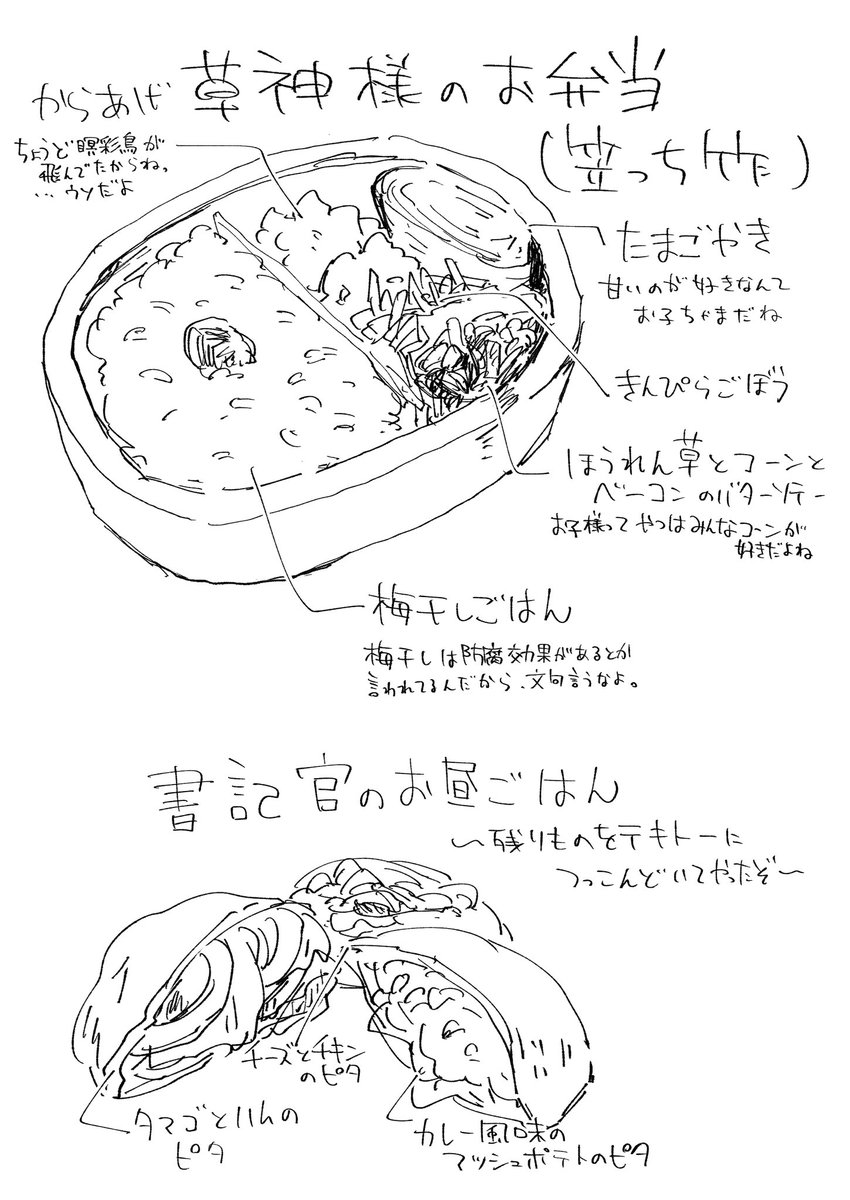 草神様のお弁当
(笠っち作)
からあげ
ちょうど暝彩鳥が
飛んでたからね。
…ウソだよ
たまごやき
甘いのが好きなんて
お子ちゃまだね
きんぴらごぼう
ほうれん草とコーンと
ベーコンのバターソテー
お子様ってやつはみんなコーンが
好きだよね
梅干しごはん
梅干しは防腐効果があるとか
言われてるんだから、文句言うなよ。
書記官のお昼ごはん
〜残りものをテキトーに
つっこんどいてやったぞ〜
チーズとチキン
のピタ
タマゴとハムの
ピタ
カレー風味の
マッシュポテトのピタ